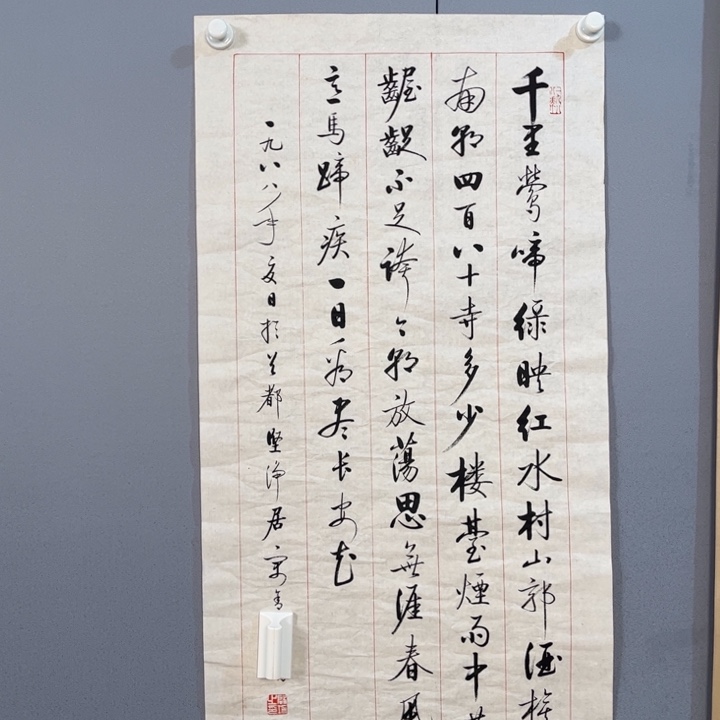 千里鶯啼绿映红水村山郭酒旗
南朝四百八十寺多少楼臺煙雨中
齷齪不足誇今朝放蕩思無涯春風
意馬蹄疾一日看盡长安花
一九八八年夏日於都堅净居